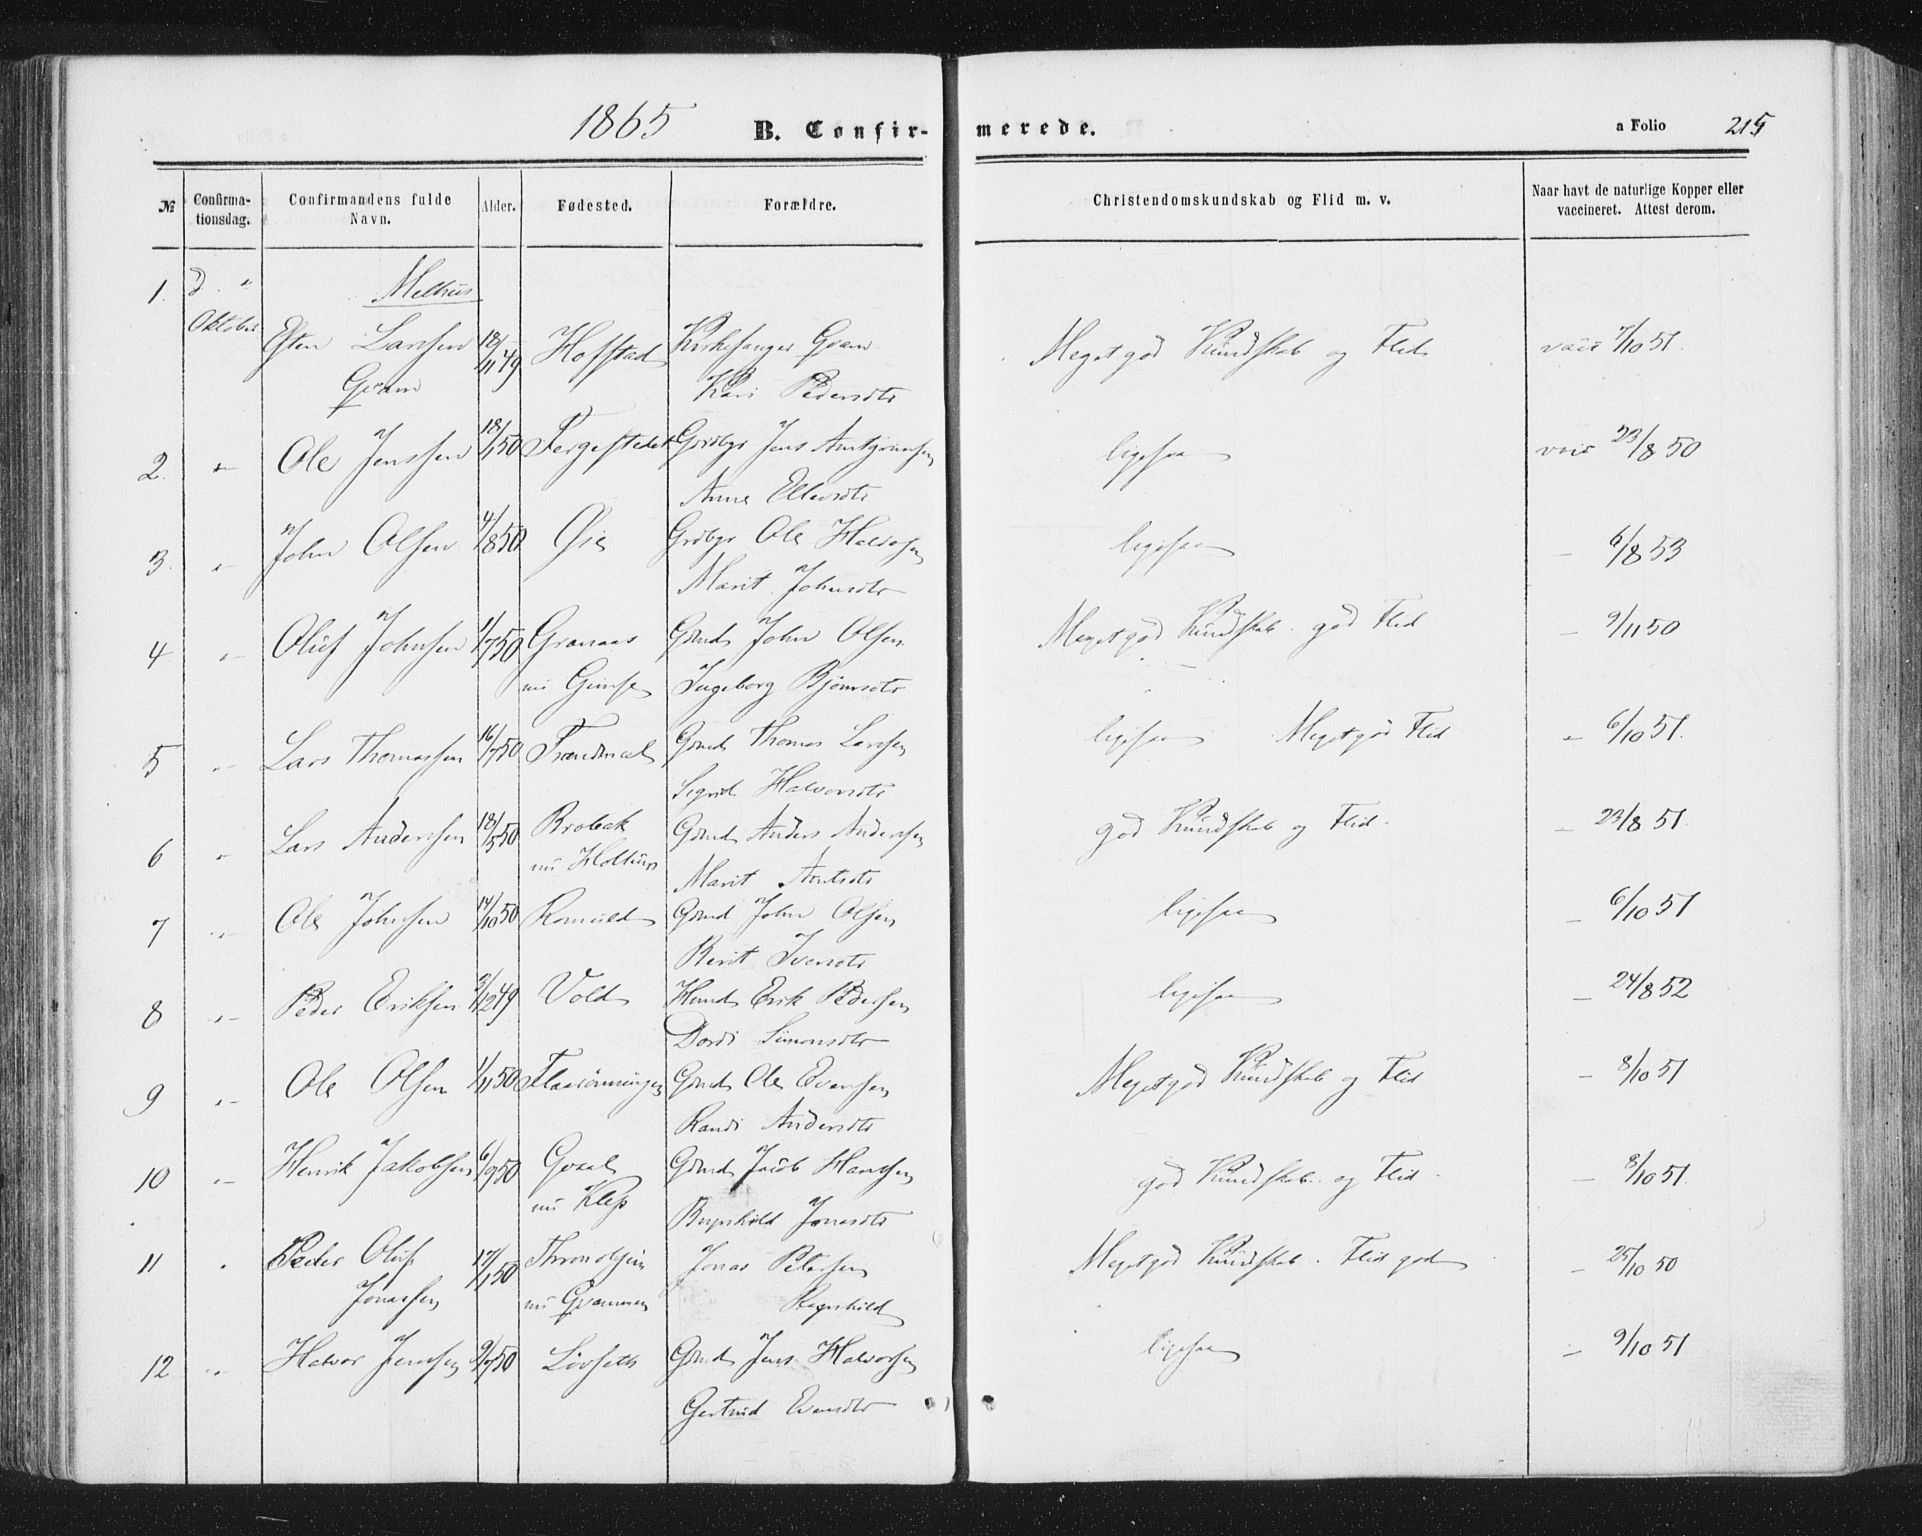 1865 B. Confirmerede. a Folio 215
№ Confirmationsdag. Confirmandens fulde Navn. Alder. Fødested. Forældre. Christendomskundskab og Flid m. v. Naar havt de naturlige Kopper eller vaccineret. Attest derom.
1. d. " Melhus
Oktober Esten Larssen 18/11 49 Hofstad Kirkesanger Gvam Meget god Kundskab og Flid vacc 7/10 51.
Gvam Kari Pedersdtr
2. " Ole Jenssen 18/1 50 Fergestedet Grdbgr Jens Arntzen ligesaa vacc 23/8 50
Anne Ellevsdtr
3. " John Olsen 4/8 50 Øie Grdbgr Ole Halvorsen ligesaa – 6/8 53
Marit Johnsdtr
4 " Oluf Johnsen 1/7 50 Granaas Gmd John Olsen Meget god Kundskab. god Flid – 9/11 50
nu Gimse Ingeborg Bjørnsdtr
5 " Lars Thomassen 16/7 50 Trandmæl Gmd Thomas Larssen ligesaa Meget god Flid " 6/10 51.
Sigrid Halvorsdtr
6 " Lars Anderssen 18/5 50 Brobak Gmd Anders Anderssen god Kundskab og Flid. – 23/8 51.
nu Hollum Marit Arntsdtr
7 " Ole Johnsen 14/10 50 Romuld Gmd John Olsen ligesaa – 6/10 51
Berit Iversdtr
8 " Peder Eriksen 2/12 49 Vold Hmd Erik Pedersen ligesaa – 24/8 52
Dordi Simonsdtr
9 " Ole Olsen 1/11 50 Flaarønningen Gmd Ole Evensen Meget god Kundskab og Flid – 8/10 51
Randi Andersdtr
10 " Henrik Jakobsen 6/9 50 Gvaal Gmd Jacob Hanssen god Kundskab og Flid – 8/10 51.
nu Klep Ragnhild Jonasdtr
11 " Peder Oluf 17/1 50 Throndhjem Jonas Petersen Meget god Kundskab. Flid god – 25/10 50
Jonassen nu Gvammen Ragnhild
12 " Halvor Jenssen 9/7 50 Løvseth Gmd Jens Halvorsen ligesaa – 9/10 51
Gertrud Evensdtr